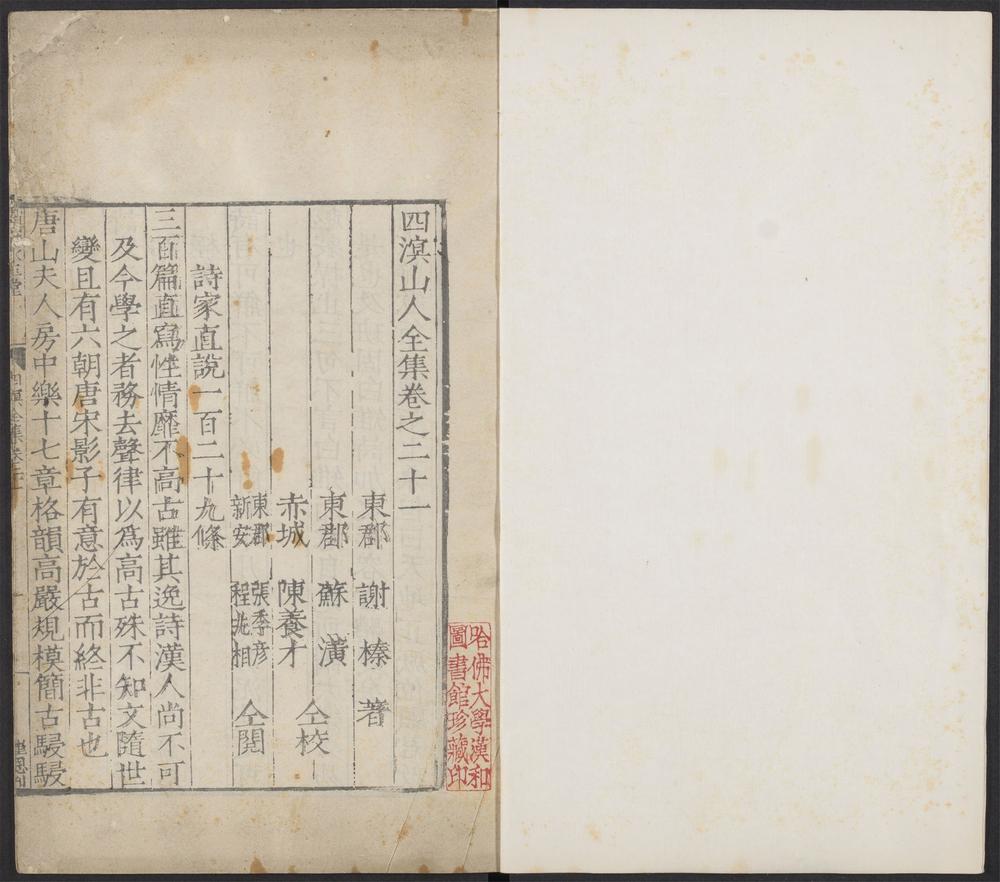 四溟山人全集卷之二十一
東郡 謝榛 著
東郡 蘇潢
赤城 陳養才 仝校
東郡 張季彦
新安 程兆相 仝閲
詩家直說一百二十九條
三百篇直寫性情靡不高古雖其逸詩漢人尚不可
及今學之者務去聲律以爲高古殊不知文隨世
變且有六朝唐宋影子有意於古而終非古也
唐山夫人房中樂十七章格韻高嚴規模簡古駸駸
四溟全集卷
哈佛大學漢和
圖書館珍藏印